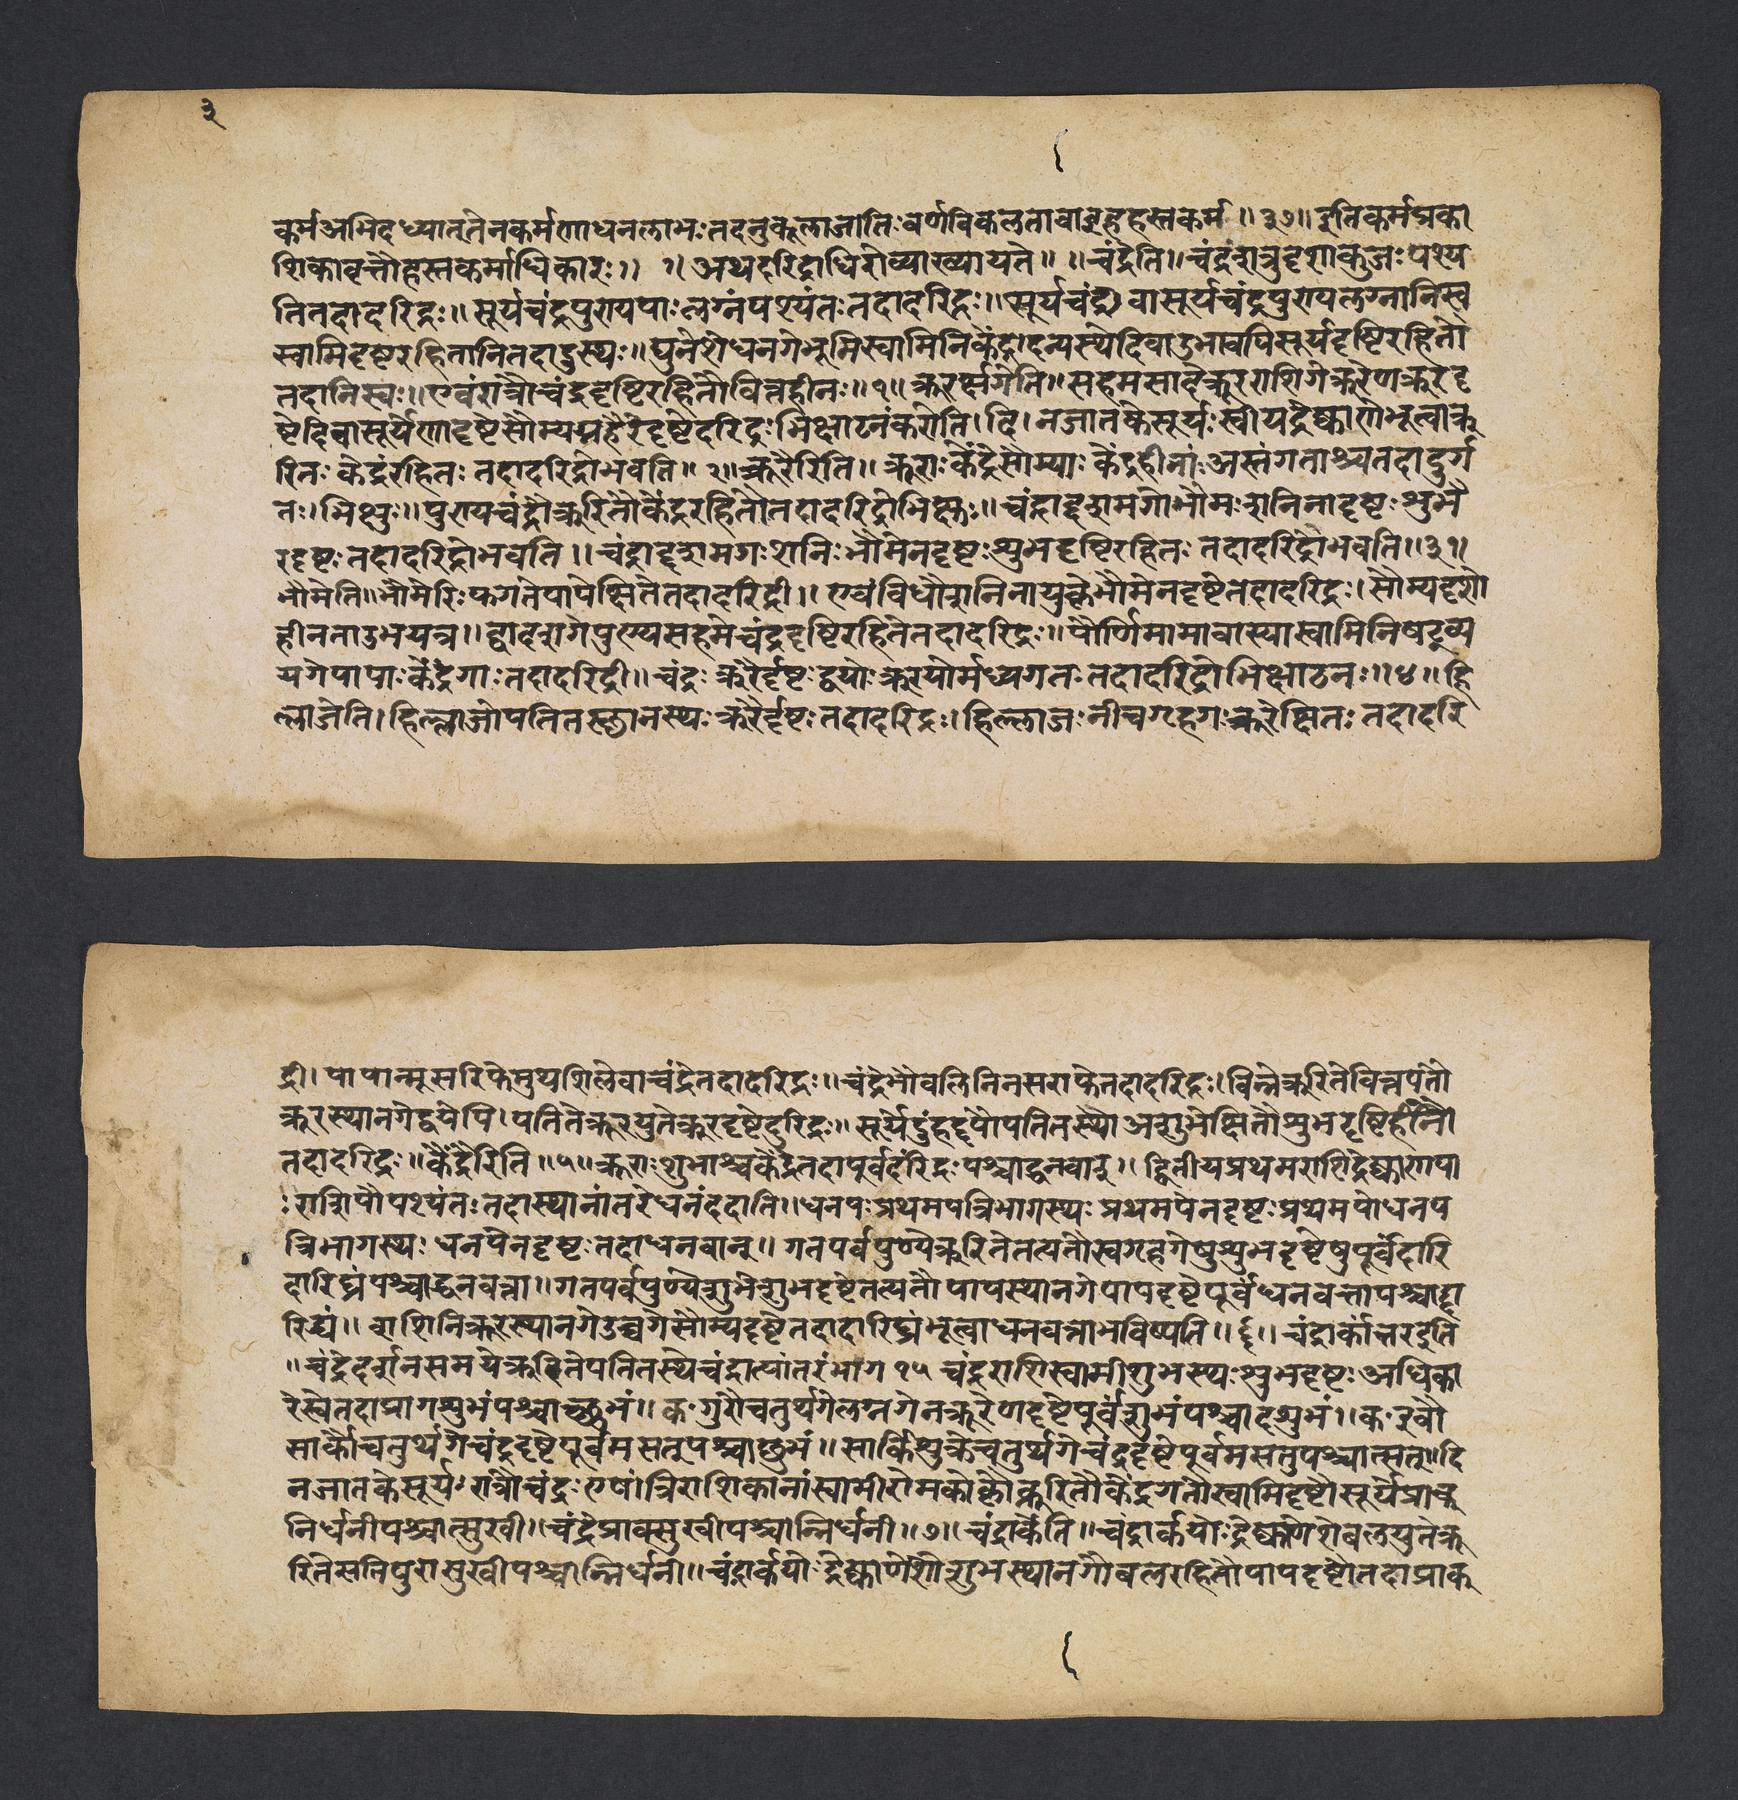 ३
कर्मअभिदध्यात्तेनकर्मणाधनलाभःतदनुकूलाजातिःवर्णविकलतावाइहहस्तकर्म॥३७॥इतिकर्मप्रका
शिकावृत्तौहस्तकर्माधिकारः॥ १। अथदरिद्राधिरोव्याख्यायते॥ ॥चंद्रेति॥चंद्रंशत्रुदृशाकुजःपश्य
तितदादरिद्रः॥सूर्यचंद्रपुरायपाःलग्नंपश्यंतःतदादरिद्रः॥सूर्यचंद्रौ वासूर्यचंद्रपुरायलग्नानिस्व
स्वामिदृष्टरहितानितदादुस्थः॥पुनेशेधनगेभूमिस्वामिनिकेंद्रादन्यस्थेदिवाउभावपिसूर्यदृष्टिरहितौ
तदानिस्वः॥एवंरात्रौचंद्रदृष्टिरहितौवित्तहीनः॥१॥क्रूरर्क्षगेति॥सहमसादेक्रूरराशिगेक्रूरेणक्रूरदृ
ष्टेदिवासूर्येणादृष्टेसौम्यग्रहैरदृष्टेदरिद्रःभिक्षाटनंकरोति।दि।नजातकेसूर्यःस्वीयद्रेष्काणोभूत्वाक्रू
रितः केंद्ररहितः तदादरिद्रीभवति॥ २॥क्रूरैरिति॥क्रूराःकेंद्रेसौम्याः केंद्रहीनाःअस्तंगताश्चतदादुर्ग
तः।भिक्षुः॥पुरायचंद्रौक्रूरितौकेंद्ररहितौतदादरिद्रोभिक्षुः॥चंद्राद्दशमगोभौमःशनिनादृष्टःशुभै
रदृष्टःतदादरिद्रोभवति॥चंद्राद्दशमगःशनिःभौमेनदृष्टःशुभदृष्टिरहितः तदादरिद्रोभवति॥३॥
भौमेति॥भौमेरिःफगतेपापेक्षितेतदादरिद्री॥ एवंविधौशनिनायुक्तेभौमेनदृष्टेतदादरिद्रः।सौम्यदृशो
हीनताउभयत्र॥द्वादशगेपुण्यसहमेचंद्रदृष्टिरहितेतदादरिद्रः॥पौर्णिमामावास्यास्वामिनिषट्व्य
यगेपापाःकेंद्रगाःतदादरिद्री॥चंद्रः क्रूरैर्दृष्टःद्वयोःक्रूरयोर्मध्यगतः तदादरिद्रोभिक्षाठनः॥४॥हि
ल्लाजेति।हिल्लाजोपतितस्थानस्थःक्रूरैर्दृष्टःतदादरिद्रः।हिल्लाजःनीचगृहगःक्रूरेक्षितः तदादरि
द्री।पापान्मूसरिफेमुथशिलेवाचंद्रेतदादरिद्रः॥चंद्रेभौवलितिनसराफेतदादरिद्रः।वित्तेक्रूरितेवित्तपतौ
क्रूरस्थानगेद्वयेपि।पतितेक्रूरयुतेक्रूरदृष्टेदरिद्रः॥सूर्येदुंहद्दपौपतितस्थौअशुभेक्षितौशुभदृष्टिहीनौ
तदादरिद्रः॥केंद्रेरिति॥५॥क्रूराःशुभाश्चकेंद्रेतदापूर्वंदरिद्रःपश्चाद्धनवान्॥द्वितीयप्रथमराशिद्रेष्काणपा
ःराशिपौपश्यंतःतदास्थानांतरेधनंददाति॥धनपःप्रथमपत्रिभागस्थः प्रथमपेनदृष्टःप्रथमपोधनप
त्रिभागस्थः धनपेनदृष्टःतदाधनवान्॥गतपर्वपुण्येक्रूरितेतत्पतौस्वगृहगेषुशुभदृष्टेषुपूर्वंदारि
दारिद्र्यंपश्चाद्धनवत्ता॥गतपर्वपुण्येशुभेशुभदृष्टेतत्पतौ पापस्थानगेपापदृष्टेपूर्वंधनवत्तापश्चाद्दा
रिद्र्यं॥राशिनिक्रूरस्थानगेउच्चगसौम्यदृष्टेतदादारिद्र्यंभूत्वाधनवत्ताभविष्यति॥६॥चंद्रार्कांत्तरइति
॥चंद्रेदर्शनसमयेक्रूरितेपतितस्थेचंद्रात्पांतरंभाग १५ चंद्रराशिस्वामीशुभस्थःशुभदृष्टःअधिका
रेस्वेतदाप्रागशुभंपश्चाच्छुभं॥कःगुरौचतुर्थगेलग्नगेनक्रूरेणदृष्टेपूर्वंशुभंपश्चादशुभं॥कःइवौ
सार्कौचतुर्थगेचंद्रदृष्टेपूर्वमसत्पश्चाछुभं॥सार्किशुक्रेचतुर्थगेचंद्रदृष्टेपूर्वमसत्तुपश्चात्सत्॥दि
नजातकेसूर्यःरात्रौचंद्रःएषांत्रिराशिकानांस्वामीरोमकोक्तौक्रूरितौकेंद्रगतौस्वामिदृष्टौसूर्येप्राक्
निर्धनीपश्चात्सुखी॥चंद्रेप्राक्सुखीपश्चान्निर्धनी॥७॥चंद्रार्केति॥चंद्रार्कयोःद्रेष्काणेशेबलयुतेक्रू
रितेसतिपुरासुखीपश्चान्निर्धनी॥चंद्रार्कयोःद्रेष्काणेशौशुभस्थानगौबलरहितौपापदृष्टौतदाप्राक्